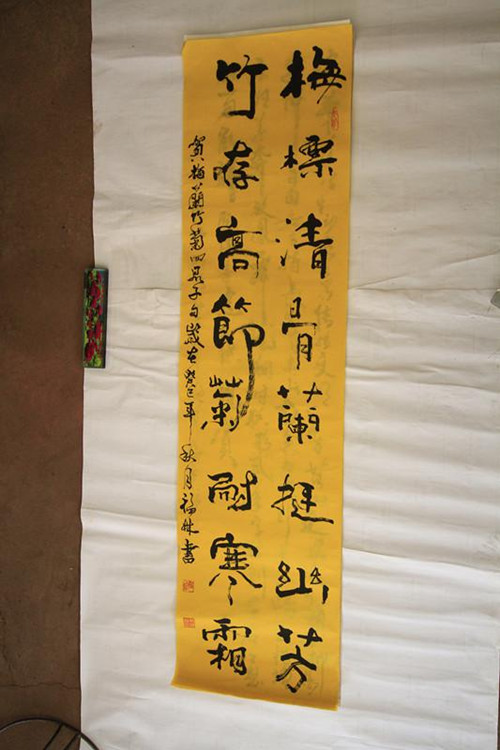 梅標清骨蘭挺幽芳
竹存高節菊耐寒霜
賀梅蘭竹菊四君子句歲在癸巳年秋月福林書